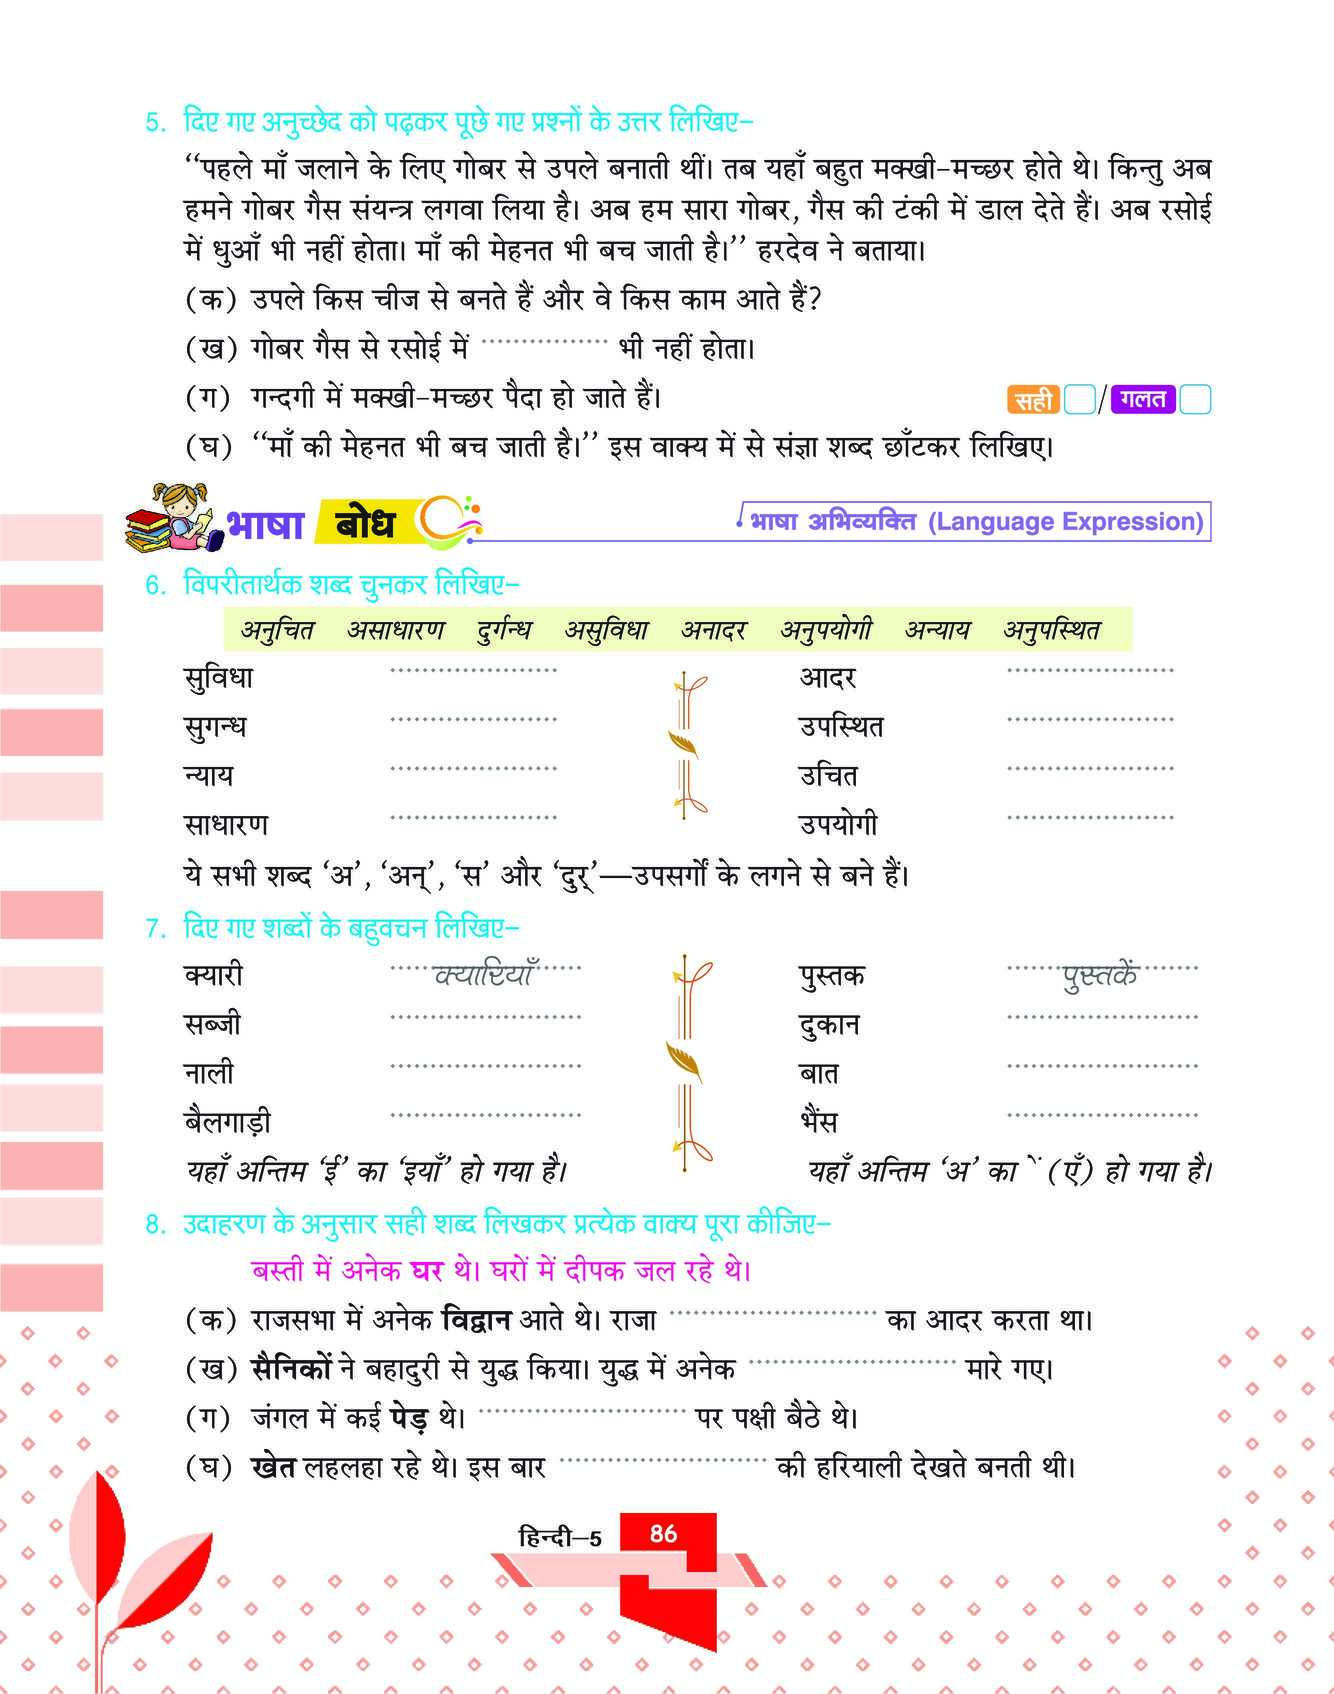 5. दिए गए अनुच्छेद को पढ़कर पूछे गए प्रश्नों के उत्तर लिखिए–
‘‘पहले माँ जलाने के लिए गोबर से उपले बनाती थीं। तब यहाँ बहुत मक्खी-मच्छर होते थे। किन्तु अब
हमने गोबर गैस संयन्त्र लगवा लिया है। अब हम सारा गोबर, गैस की टंकी में डाल देते हैं। अब रसोई
में धुआँ भी नहीं होता। माँ की मेहनत भी बच जाती है।’’ हरदेव ने बताया।
(क) उपले किस चीज से बनते हैं और वे किस काम आते हैं?
(ख) गोबर गैस से रसोई में ................ भी नहीं होता।
(ग) गन्दगी में मक्खी-मच्छर पैदा हो जाते हैं। सही / गलत
(घ) ‘‘माँ की मेहनत भी बच जाती है।’’ इस वाक्य में से संज्ञा शब्द छाँटकर लिखिए।
भाषा बोध भाषा अभिव्यक्ति (Language Expression)
6. विपरीतार्थक शब्द चुनकर लिखिए–
अनुचित असाधारण दुर्गन्ध असुविधा अनादर अनुपयोगी अन्याय अनुपस्थित
सुविधा ..................... आदर .....................
सुगन्ध ..................... उपस्थित .....................
न्याय ..................... उचित .....................
साधारण ..................... उपयोगी .....................
ये सभी शब्द ‘अ’, ‘अन्’, ‘स’ और ‘दुर्’—उपसर्गों के लगने से बने हैं।
7. दिए गए शब्दों के बहुवचन लिखिए–
क्यारी क्यारियाँ पुस्तक पुस्तकें
सब्जी ........................ दुकान ........................
नाली ........................ बात ........................
बैलगाड़ी ........................ भैंस ........................
यहाँ अन्तिम ‘ई’ का ‘इयाँ’ हो गया है। यहाँ अन्तिम ‘अ’ का ें (एँ) हो गया है।
8. उदाहरण के अनुसार सही शब्द लिखकर प्रत्येक वाक्य पूरा कीजिए–
बस्ती में अनेक घर थे। घरों में दीपक जल रहे थे।
(क) राजसभा में अनेक विद्वान आते थे। राजा .......................... का आदर करता था।
(ख) सैनिकों ने बहादुरी से युद्ध किया। युद्ध में अनेक .......................... मारे गए।
(ग) जंगल में कई पेड़ थे। .......................... पर पक्षी बैठे थे।
(घ) खेत लहलहा रहे थे। इस बार .......................... की हरियाली देखते बनती थी।
हिन्दी–5 86